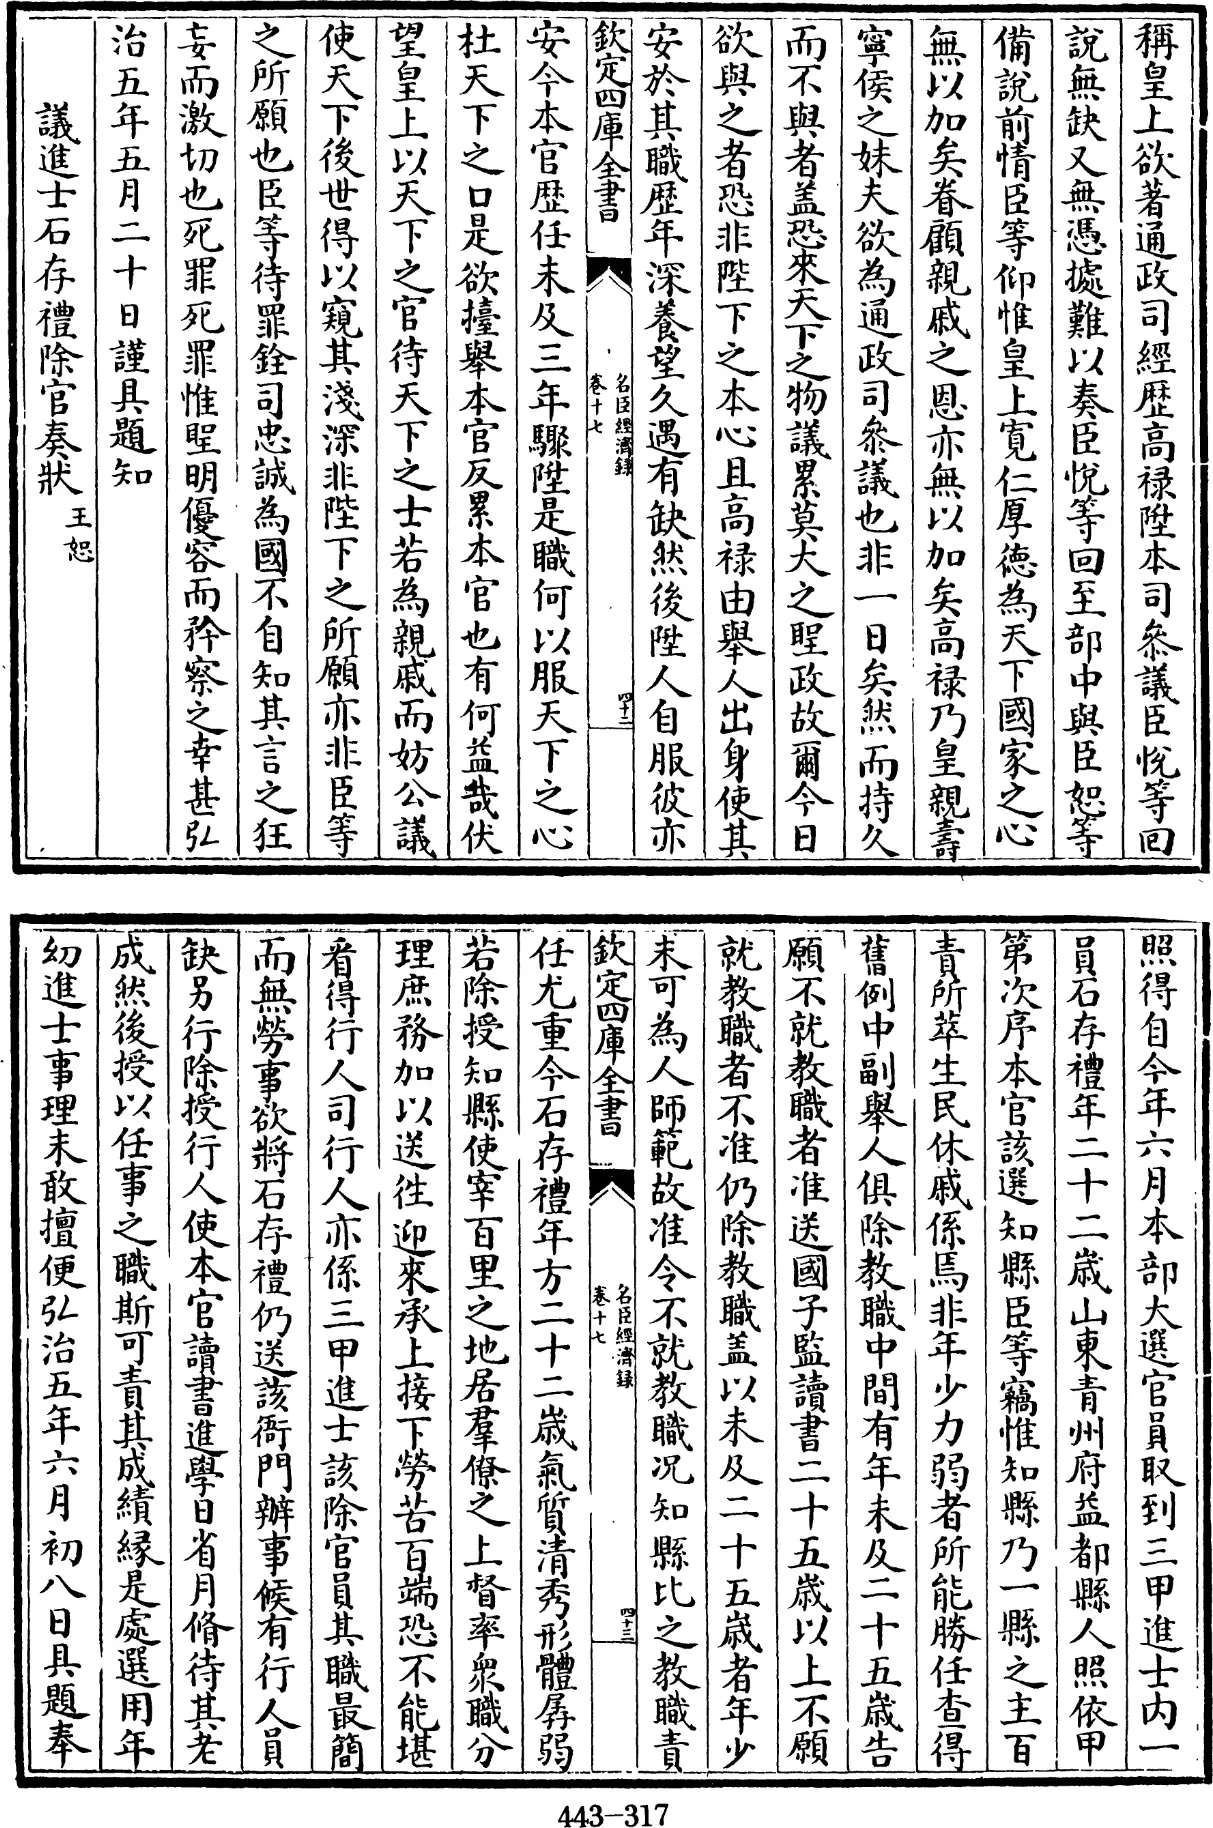 稱皇上欲著通政司經歴高禄陞本司叅議臣悅等回
說無缺又無憑㨿難以奏臣悅等回至部中與臣恕等
備說前情臣等仰惟皇上寛仁厚徳為天下國家之心
無以加矣眷顧親戚之恩亦無以加矣高禄乃皇親壽
寧侯之妹夫欲為通政司叅議也非一日矣然而持久
而不與者盖恐來天下之物議累莫大之聖政故爾今日
欲與之者恐非陛下之本心且高禄由舉人出身使其
安於其職歴年深養望久遇有缺然後陞人自服彼亦
欽定四庫全書
名臣經濟録
卷十七
四十二
安今本官歴任未及三年驟陞是職何以服天下之心
杜天下之口是欲擡舉本官反累本官也有何益哉伏
望皇上以天下之官待天下之士若為親戚而妨公議
使天下後世得以窺其淺深非陛下之所願亦非臣等
之所願也臣等待罪銓司忠誠為國不自知其言之狂
妄而激切也死罪死罪惟聖明優容而矜察之幸甚弘
治五年五月二十日謹具題知
議進士石存禮除官奏狀 王恕
照得自今年六月本部大選官員取到三甲進士内一
員石存禮年二十二歳山東青州府益都縣人照依甲
第次序本官該選知縣臣等竊惟知縣乃一縣之主百
責所萃生民休戚係焉非年少力弱者所能勝任查得
舊例中副舉人俱除教職中間有年未及二十五歳告
願不就教職者准送國子監讀書二十五歳以上不願
就教職者不准仍除教職盖以未及二十五歳者年少
未可為人師範故准令不就教職况知縣比之教職責
欽定四庫全書
名臣經濟録
卷十七
四十三
任尤重今石存禮年方二十二歳氣質清秀形體孱弱
若除授知縣使宰百里之地居羣僚之上督率衆職分
理庶務加以送徃迎來承上接下勞苦百端恐不能堪
看得行人司行人亦係三甲進士該除官員其職最簡
而無勞事欲將石存禮仍送該衙門辦事候有行人員
缺另行除授行人使本官讀書進學日省月脩待其老
成然後授以任事之職斯可責其成績縁是處選用年
㓜進士事理未敢擅便弘治五年六月初八日具題奉
443-317